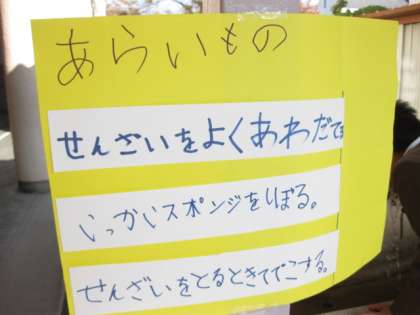 あらいもの
せんざいをよくあわだてる
いっかいスポンジをしぼる。
せんざいをとるときてでこする。